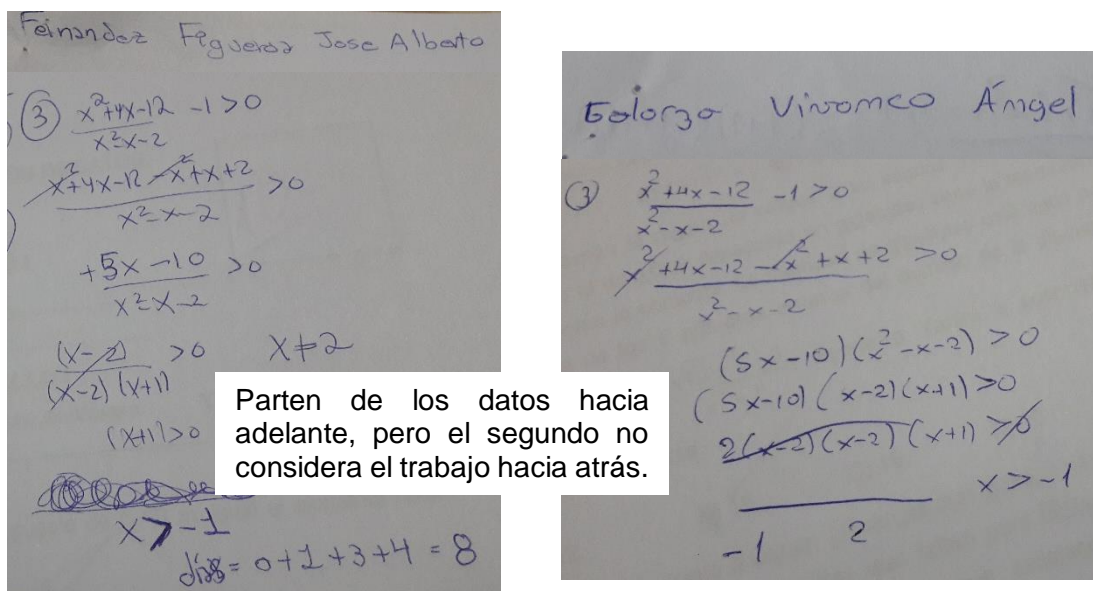 Fernandez Figueroa Jose Alberto
③ x²+4x-12 -1>0
x²-x-2
x²+4x-12-x²+x+2 >0
x²-x-2
+5x-10 >0
x²-x-2
(x-2) >0 x≠2
(x-2)(x+1)
(x+1)>0
x>-1
días= 0+1+3+4 = 8
Parten de los datos hacia
adelante, pero el segundo no
considera el trabajo hacia atrás.
Vivanco Ángel
③ x²+4x-12 -1>0
x²-x-2
x²+4x-12-x²+x+2 >0
x²-x-2
(5x-10)(x²-x-2)>0
(5x-10)(x-2)(x+1)>0
2(x-2)(x-2)(x+1)>0
x>-1
-1 2